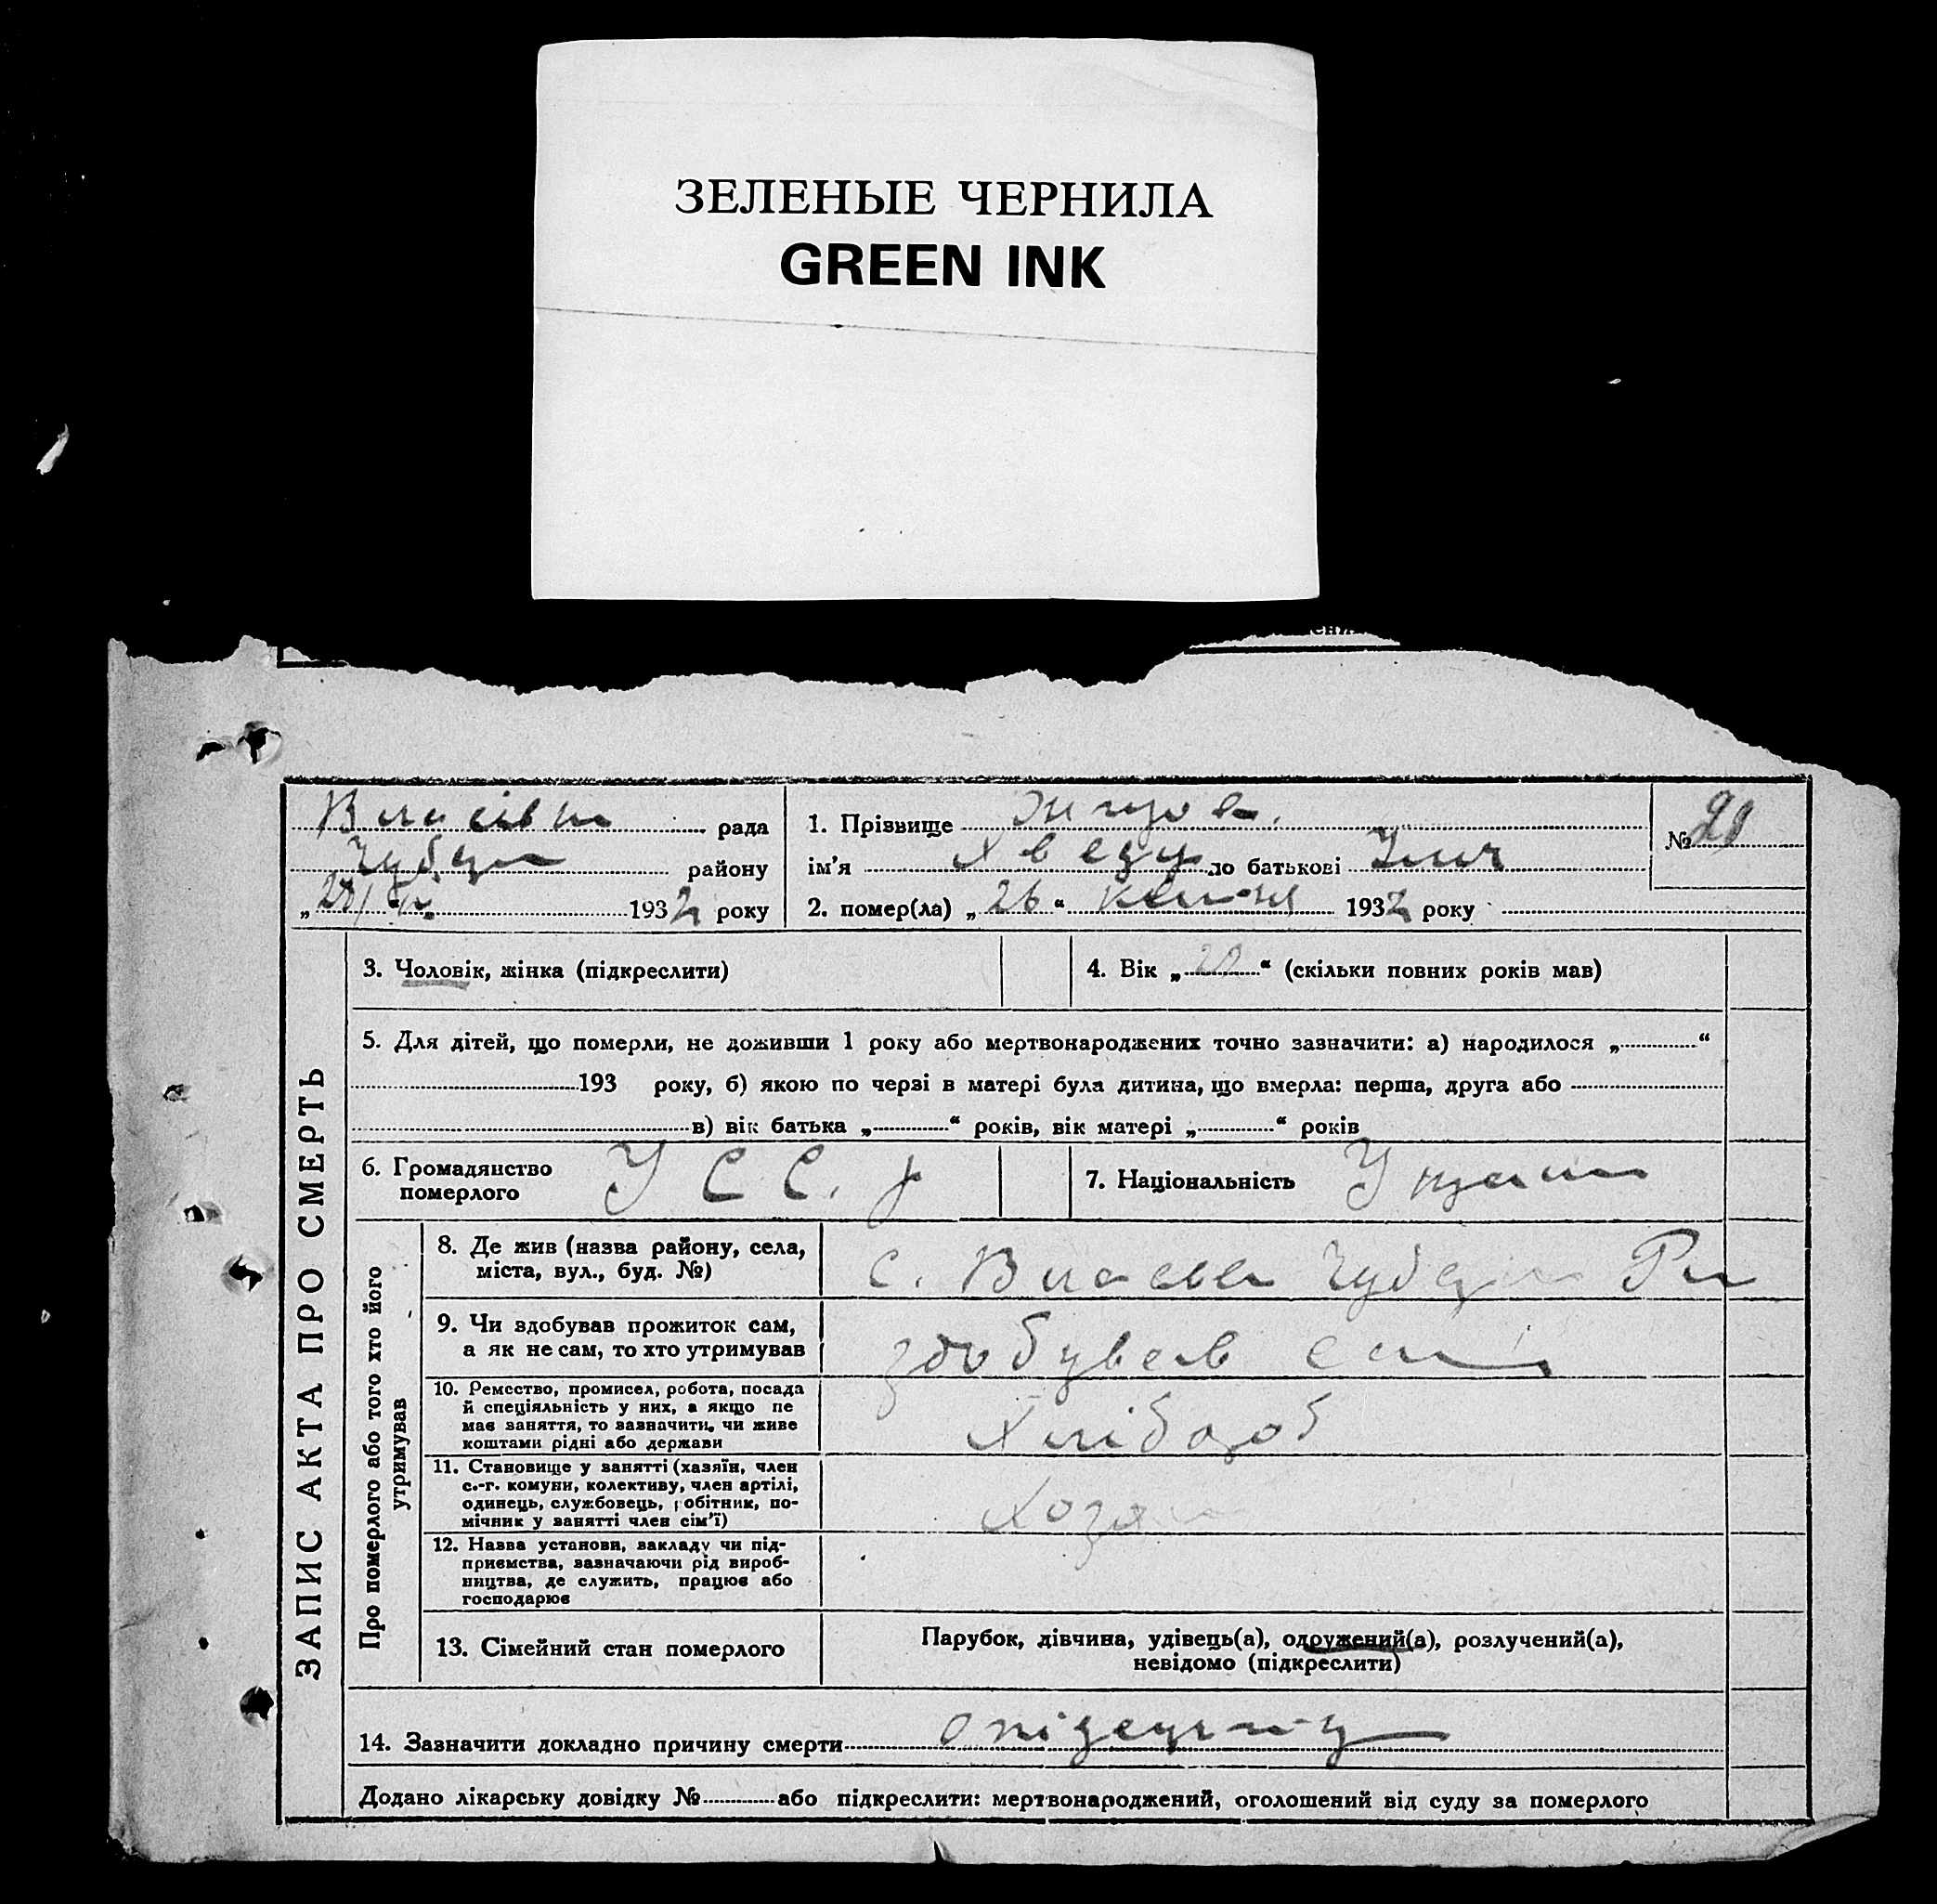 ЗЕЛЕНЫЕ ЧЕРНИЛА
GREEN INK
рада
району
1932 року
1. Прізвище
ім'я Хведир по батькові
2. помер(ла) „26“ 1932 року
№
ЗАПИС АКТА ПРО СМЕРТЬ
3. Чоловік, жінка (підкреслити)
4. Вік „“ (скільки повних років мав)
5. Для дітей, що померли, не доживши 1 року або мертвонароджених точно зазначити: а) народилося „“
193 року, б) якою по черзі в матері була дитина, що вмерла: перша, друга або
в) вік батька „“ років, вік матері „“ років
6. Громадянство
померлого
У С С. р
7. Національність
Про померлого або того хто його
утримував
8. Де жив (назва району, села,
міста, вул., буд. №)
с.
9. Чи здобував прожиток сам,
а як не сам, то хто утримував
здобував сам
10. Ремество, промисел, робота, посада
й спеціяльність у них, а якщо не
має заняття, то зазначити, чи живе
коштами рідні або держави
Хлібороб
11. Становище у занятті (хазяїн, член
с.-г. комуни, колективу, член артілі,
одинець, службовець, робітник, по-
мічник у занятті член сім'ї)
12. Назва установи, закладу чи під-
приємства, зазначаючи рід вироб-
ництва, де служить, працює або
господарює
13. Сімейний стан померлого
Парубок, дівчина, удівець(а), одружений(а), розлучений(а),
невідомо (підкреслити)
14. Зазначити докладно причину смерти
Додано лікарську довідку № або підкреслити: мертвонароджений, оголошений від суду за померлого